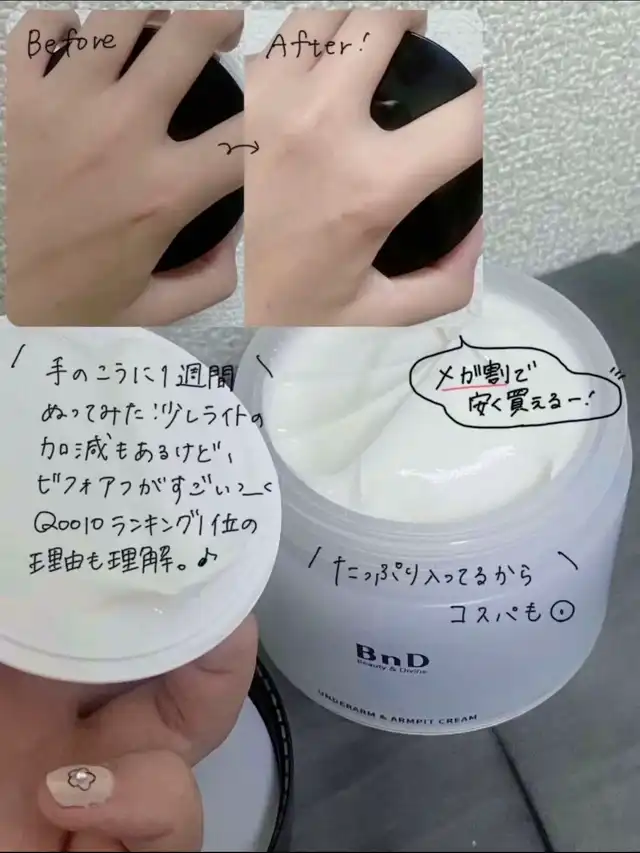 Before
After!
手のこうに1週間
ぬってみた!少しライトの
加減もあるけど、
ビフォアフがすごい
Qoo10ランキング1位の
理由も理解。♪
メガ割で
安く買えるー!
たっぷり入ってるから
コスパも◎
BnD
Beauty & Divine
UNDERARM & ARMPIT CREAM